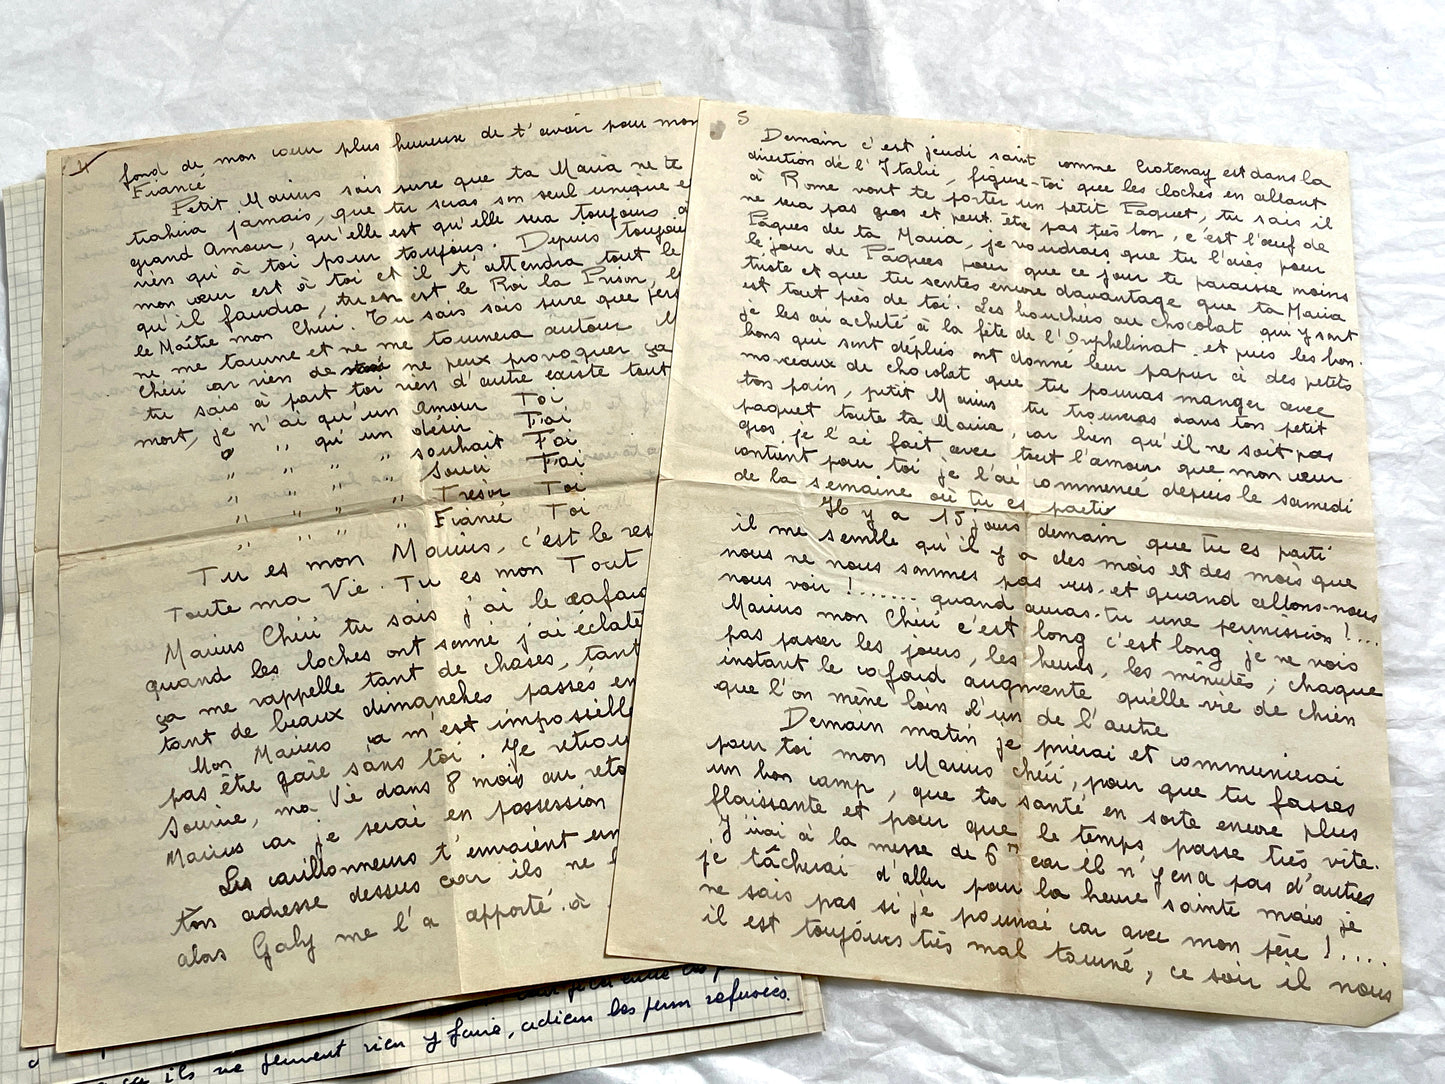 4
fond de mon cœur plus heureuse de t'avoir pour mon
Fiancé
Petit Marius sois sure que ta Maria ne te
trahira jamais, que tu seras son seul unique e
grand Amour, qu'elle est qu'elle sera toujours à
rien qu'à toi pour toujours. Depuis toujours
mon cœur est à toi et il t'attendra tout le
qu'il faudra, tu en est le Roi la Prison, l
le Maître mon Chéri. Tu sais sois sure que pers
ne me tourne et ne me tournera autour M
Chéri car rien de ne peux provoquer ça
tu sais à part toi rien d'autre existe tout
mort, je n'ai qu'un amour Toi
" " qu'un désir Toi
" " " " souhait Toi
" " " " souci Toi
" " " " Trésor Toi
" " " " Fiancé Toi
Tu es mon Marius, c'est le res
Toute ma Vie. Tu es mon Tout
Marius Chéri tu sais j'ai le cafard
quand les cloches ont sonné j'ai éclaté
ça me rappelle tant de choses, tant
tant de beaux dimanches passés en
Mon Marius ça m'est impossible
pas être gaie sans toi. Je retrou
sourire, ma Vie dans 8 mois au reto
Marius car je serai en possession
Les carillonneurs t'envoient un
ton adresse dessus car ils ne l
alors Galy me l'a apporté à
5
Demain c'est jeudi saint comme Chatenay est dans la
direction de l'Italie, figure-toi que les cloches en allant
à Rome vont te porter un petit Paquet, tu sais il
ne sera pas gros et peut être pas très bon, c'est l'œuf de
Pâques de ta Maria, je voudrais que tu l'aies pour
le jour de Pâques pour que ce jour te paraisse moins
triste et que tu sentes encore davantage que ta Maria
est tout près de toi. Les bouchées au chocolat qui y sont
je les ai acheté à la fête de l'Orphelinat et puis les bon-
bons qui sont dépliés ont donné leur papier à des petits
morceaux de chocolat que tu pourras manger avec
ton pain, petit Marius tu trouveras dans ton petit
paquet toute ta Maria, car bien qu'il ne soit pas
gros je l'ai fait avec tout l'amour que mon cœur
contient pour toi je l'ai commencé depuis le samedi
de la semaine où tu es parti
Il y a 15 jours demain que tu es parti
il me semble qu'il y a des mois et des mois que
nous ne nous sommes pas vus. et quand allons-nous
nous voir !...... quand auras-tu une permission !....
Marius mon Chéri c'est long c'est long je ne vois
pas passer les jours, les heures, les minutes ; chaque
instant le cafard augmente quelle vie de chien
que l'on mène loin l'un de l'autre
Demain matin je prierai et communierai
pour toi mon Marius chéri, pour que tu fasses
un bon camp, que ta santé en sorte encore plus
flaissante et pour que le temps passe très vite.
J'irai à la messe de 6h car il n'y en a pas d'autres
je tâcherai d'aller pour la heure sainte mais je
ne sais pas si je pourrai car avec mon père !....
il est toujours très mal tourné, ce soir il nous
ils ne peuvent rien y faire, adieu les perm refusées.